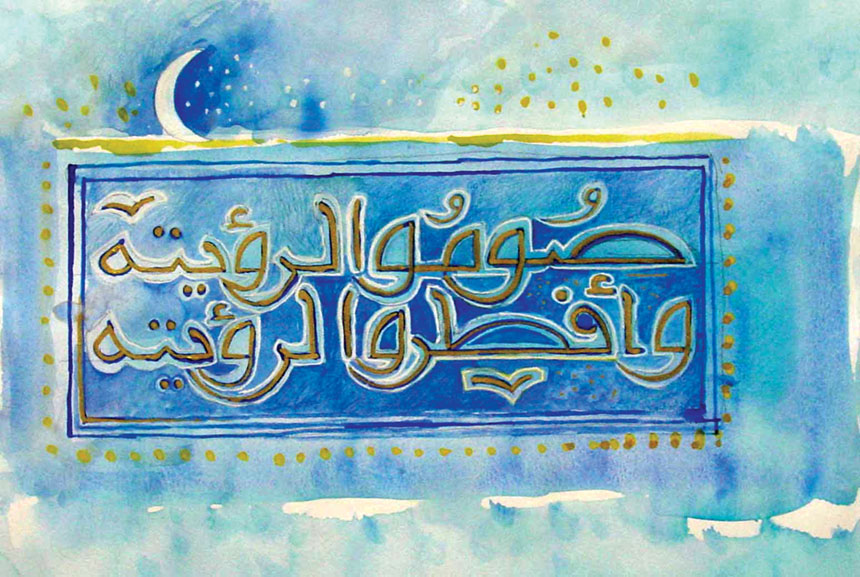 صُومُوا لرؤيته
وأفطروا لرؤيته